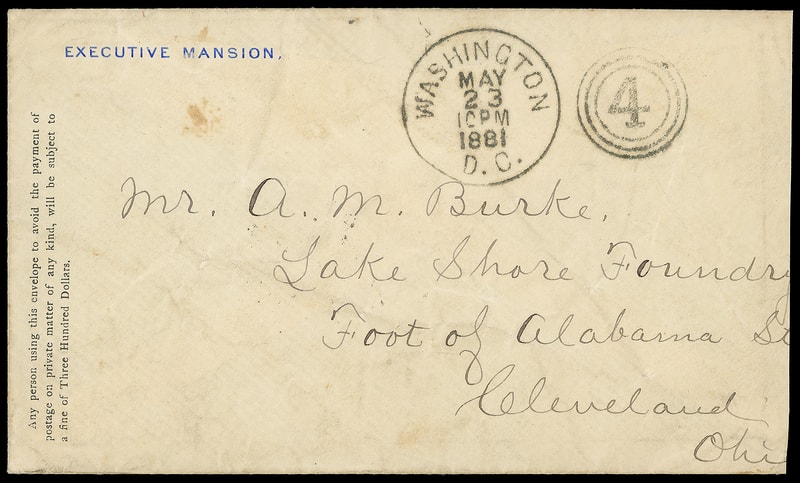 EXECUTIVE MANSION.
WASHINGTON
MAY
23
10PM
1881
D. C.
4
Any person using this envelope to avoid the payment of
postage on private matter of any kind, will be subject to
a fine of Three Hundred Dollars.
Mr. A. M. Burke.
Lake Shore Foundry
Foot of Alabama St
Cleveland
Ohio